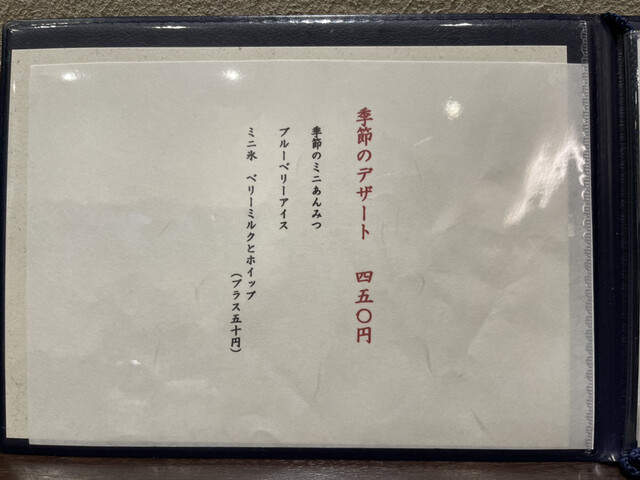 季節のデザート　四五〇円
季節のミニあんみつ
ブルーベリーアイス
ミニ氷　ベリーミルクとホイップ
（プラス五十円）